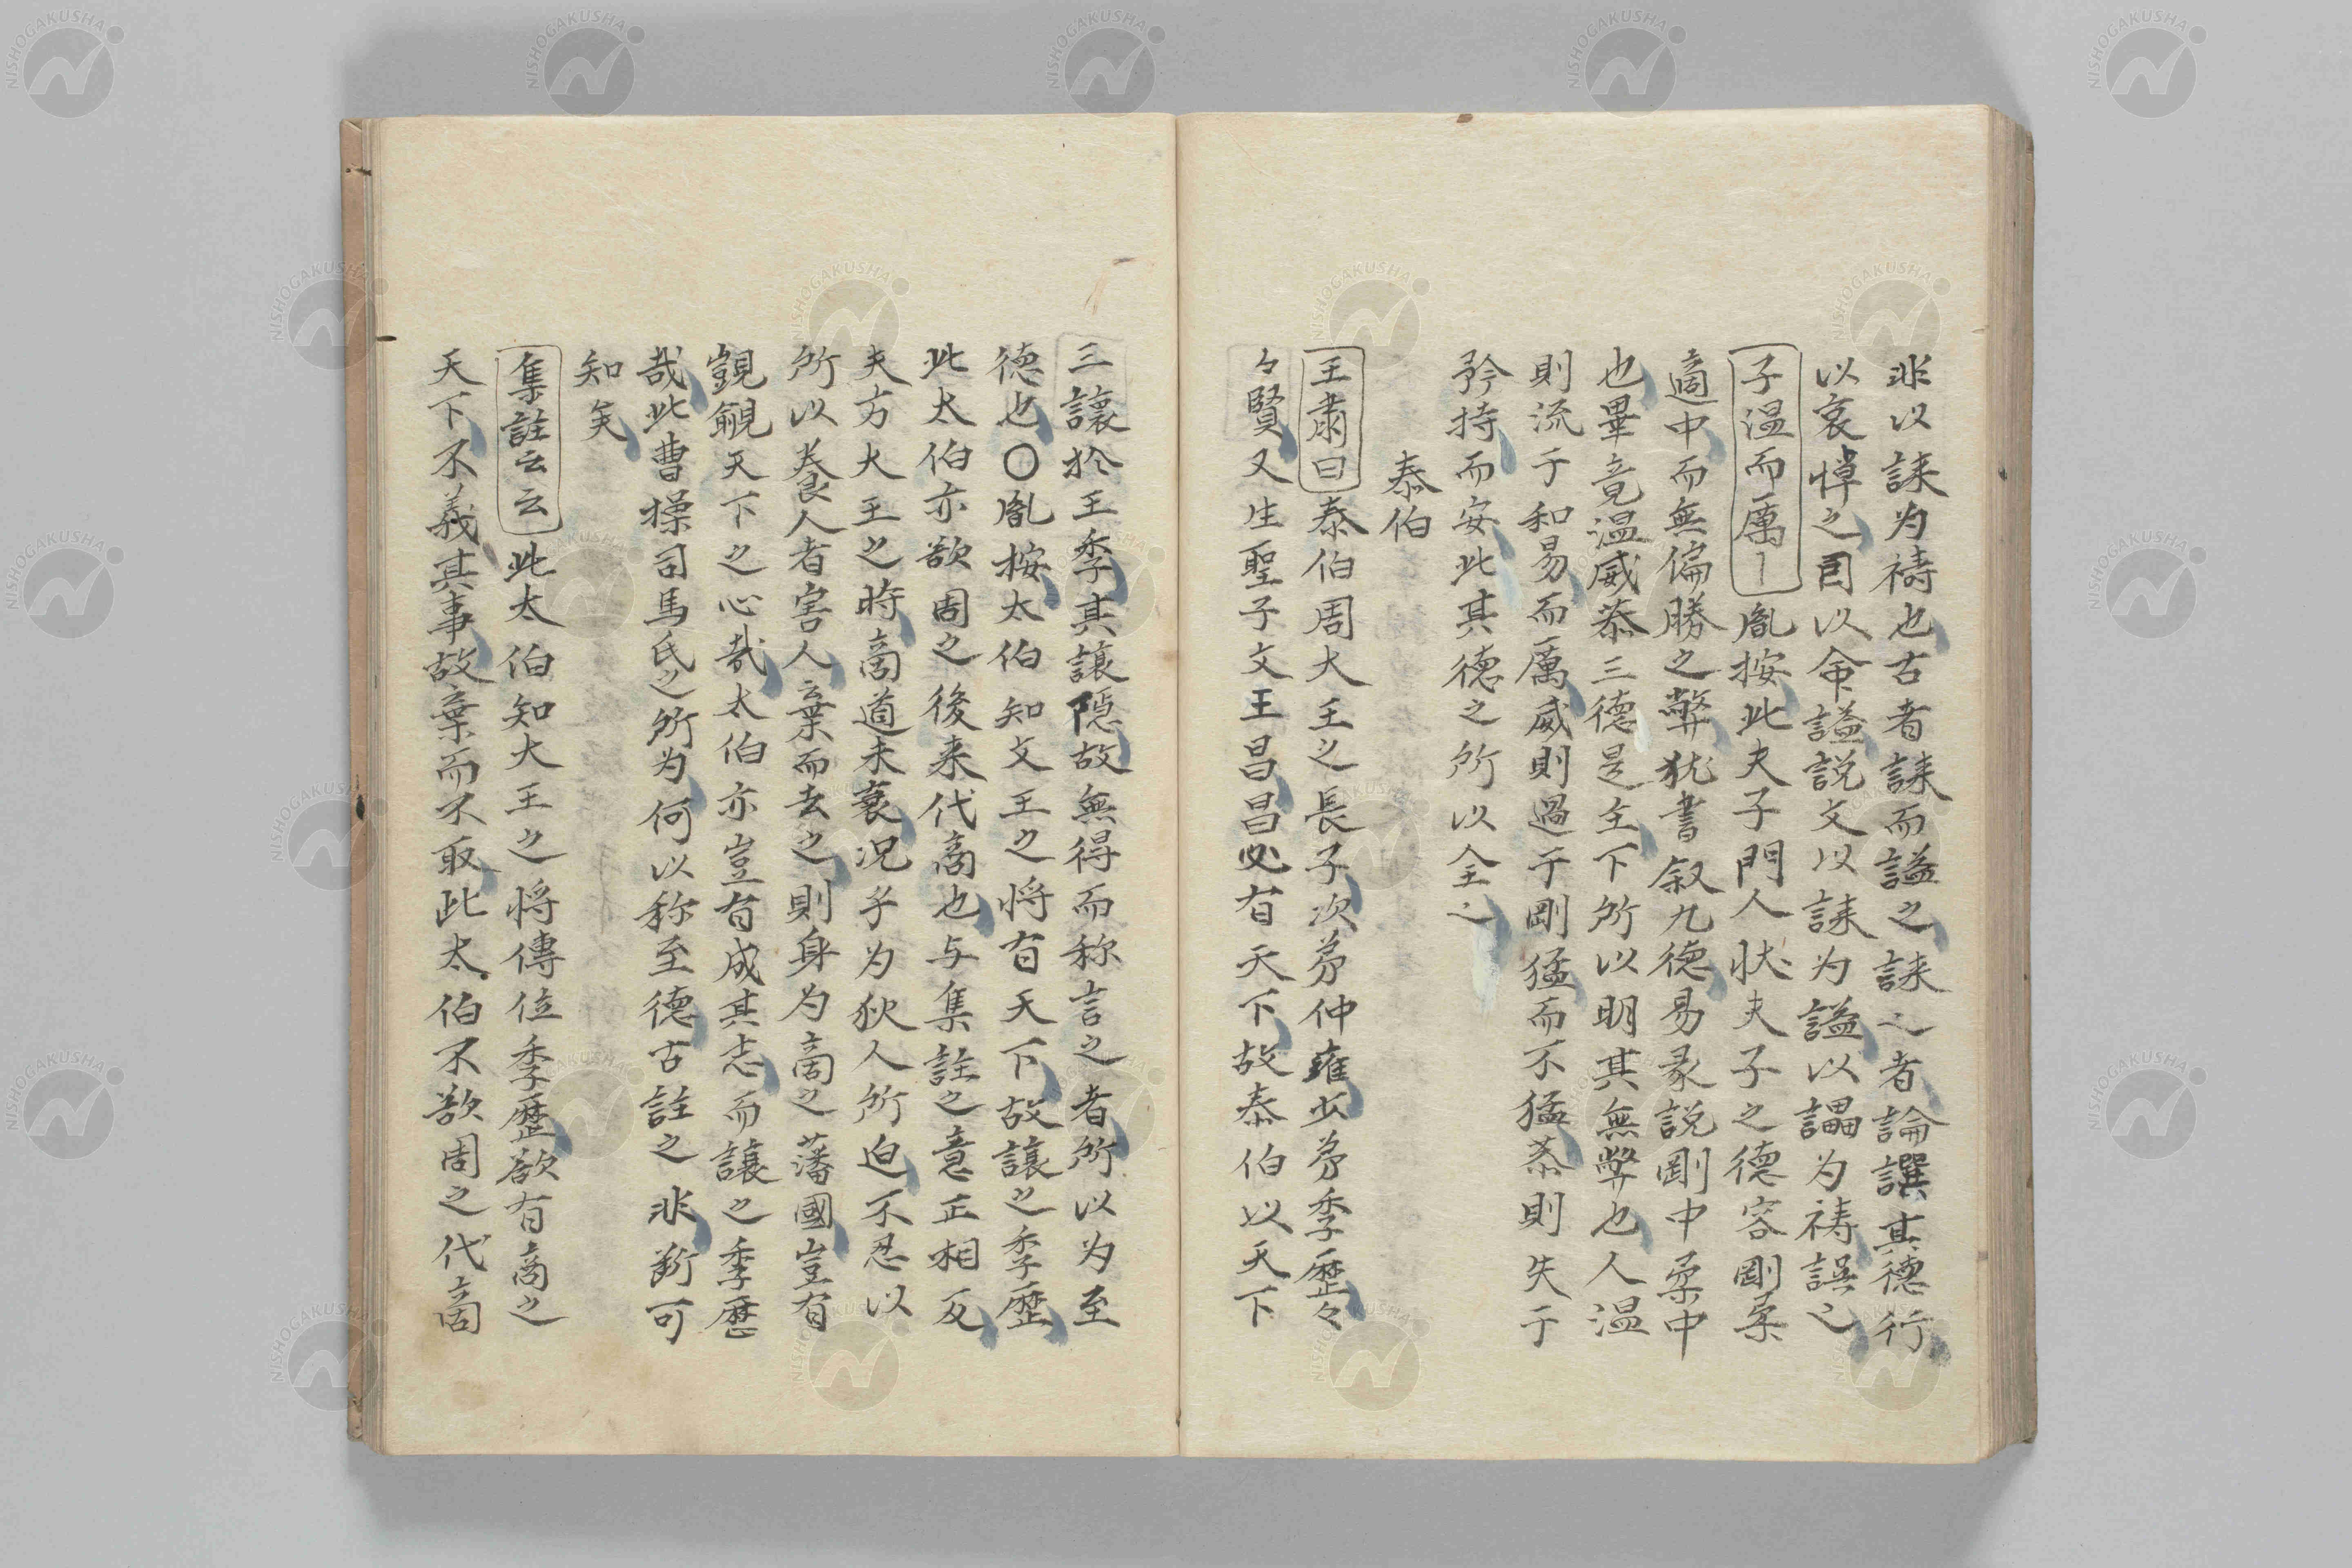 非以誄为禱也古者誄而謚之誄之者論譔其德行
以哀悼之因以命謚説文以誄为謚以讄为禱誤之
子温而厲 胤按此夫子門人状夫子之德容剛柔
適中而無偏勝之弊犹書叙九德易彖説剛中柔中
也畢竟温威恭三德是主下所以明其無弊也人温
則流于和易而厲威則過于剛猛而不猛恭則失于
矜持而安此其德之所以全之
泰伯
王肅曰泰伯周大王之長子次弟仲雍少弟季歴々
々賢又生聖子文王昌昌必有天下故泰伯以天下
三讓於王季其讓隠故無得而称言之者所以为至
德也〇胤按太伯知文王之将有天下故讓之季歴
此太伯亦欲周之後来代商也与集註之意正相反
夫方大王之時商道未衰况乎为狄人所迫不忍以
所以養人者害人棄而去之則身为商之藩國豈有
覬覦天下之心哉太伯亦豈有成其志而讓之季歴
哉此曹操司馬氏之所为何以称至德古註之非断可
知矣
集註云云此太伯知大王之将傳位季歴欲有商之
天下不義其事故棄而不取此太伯不欲周之代商